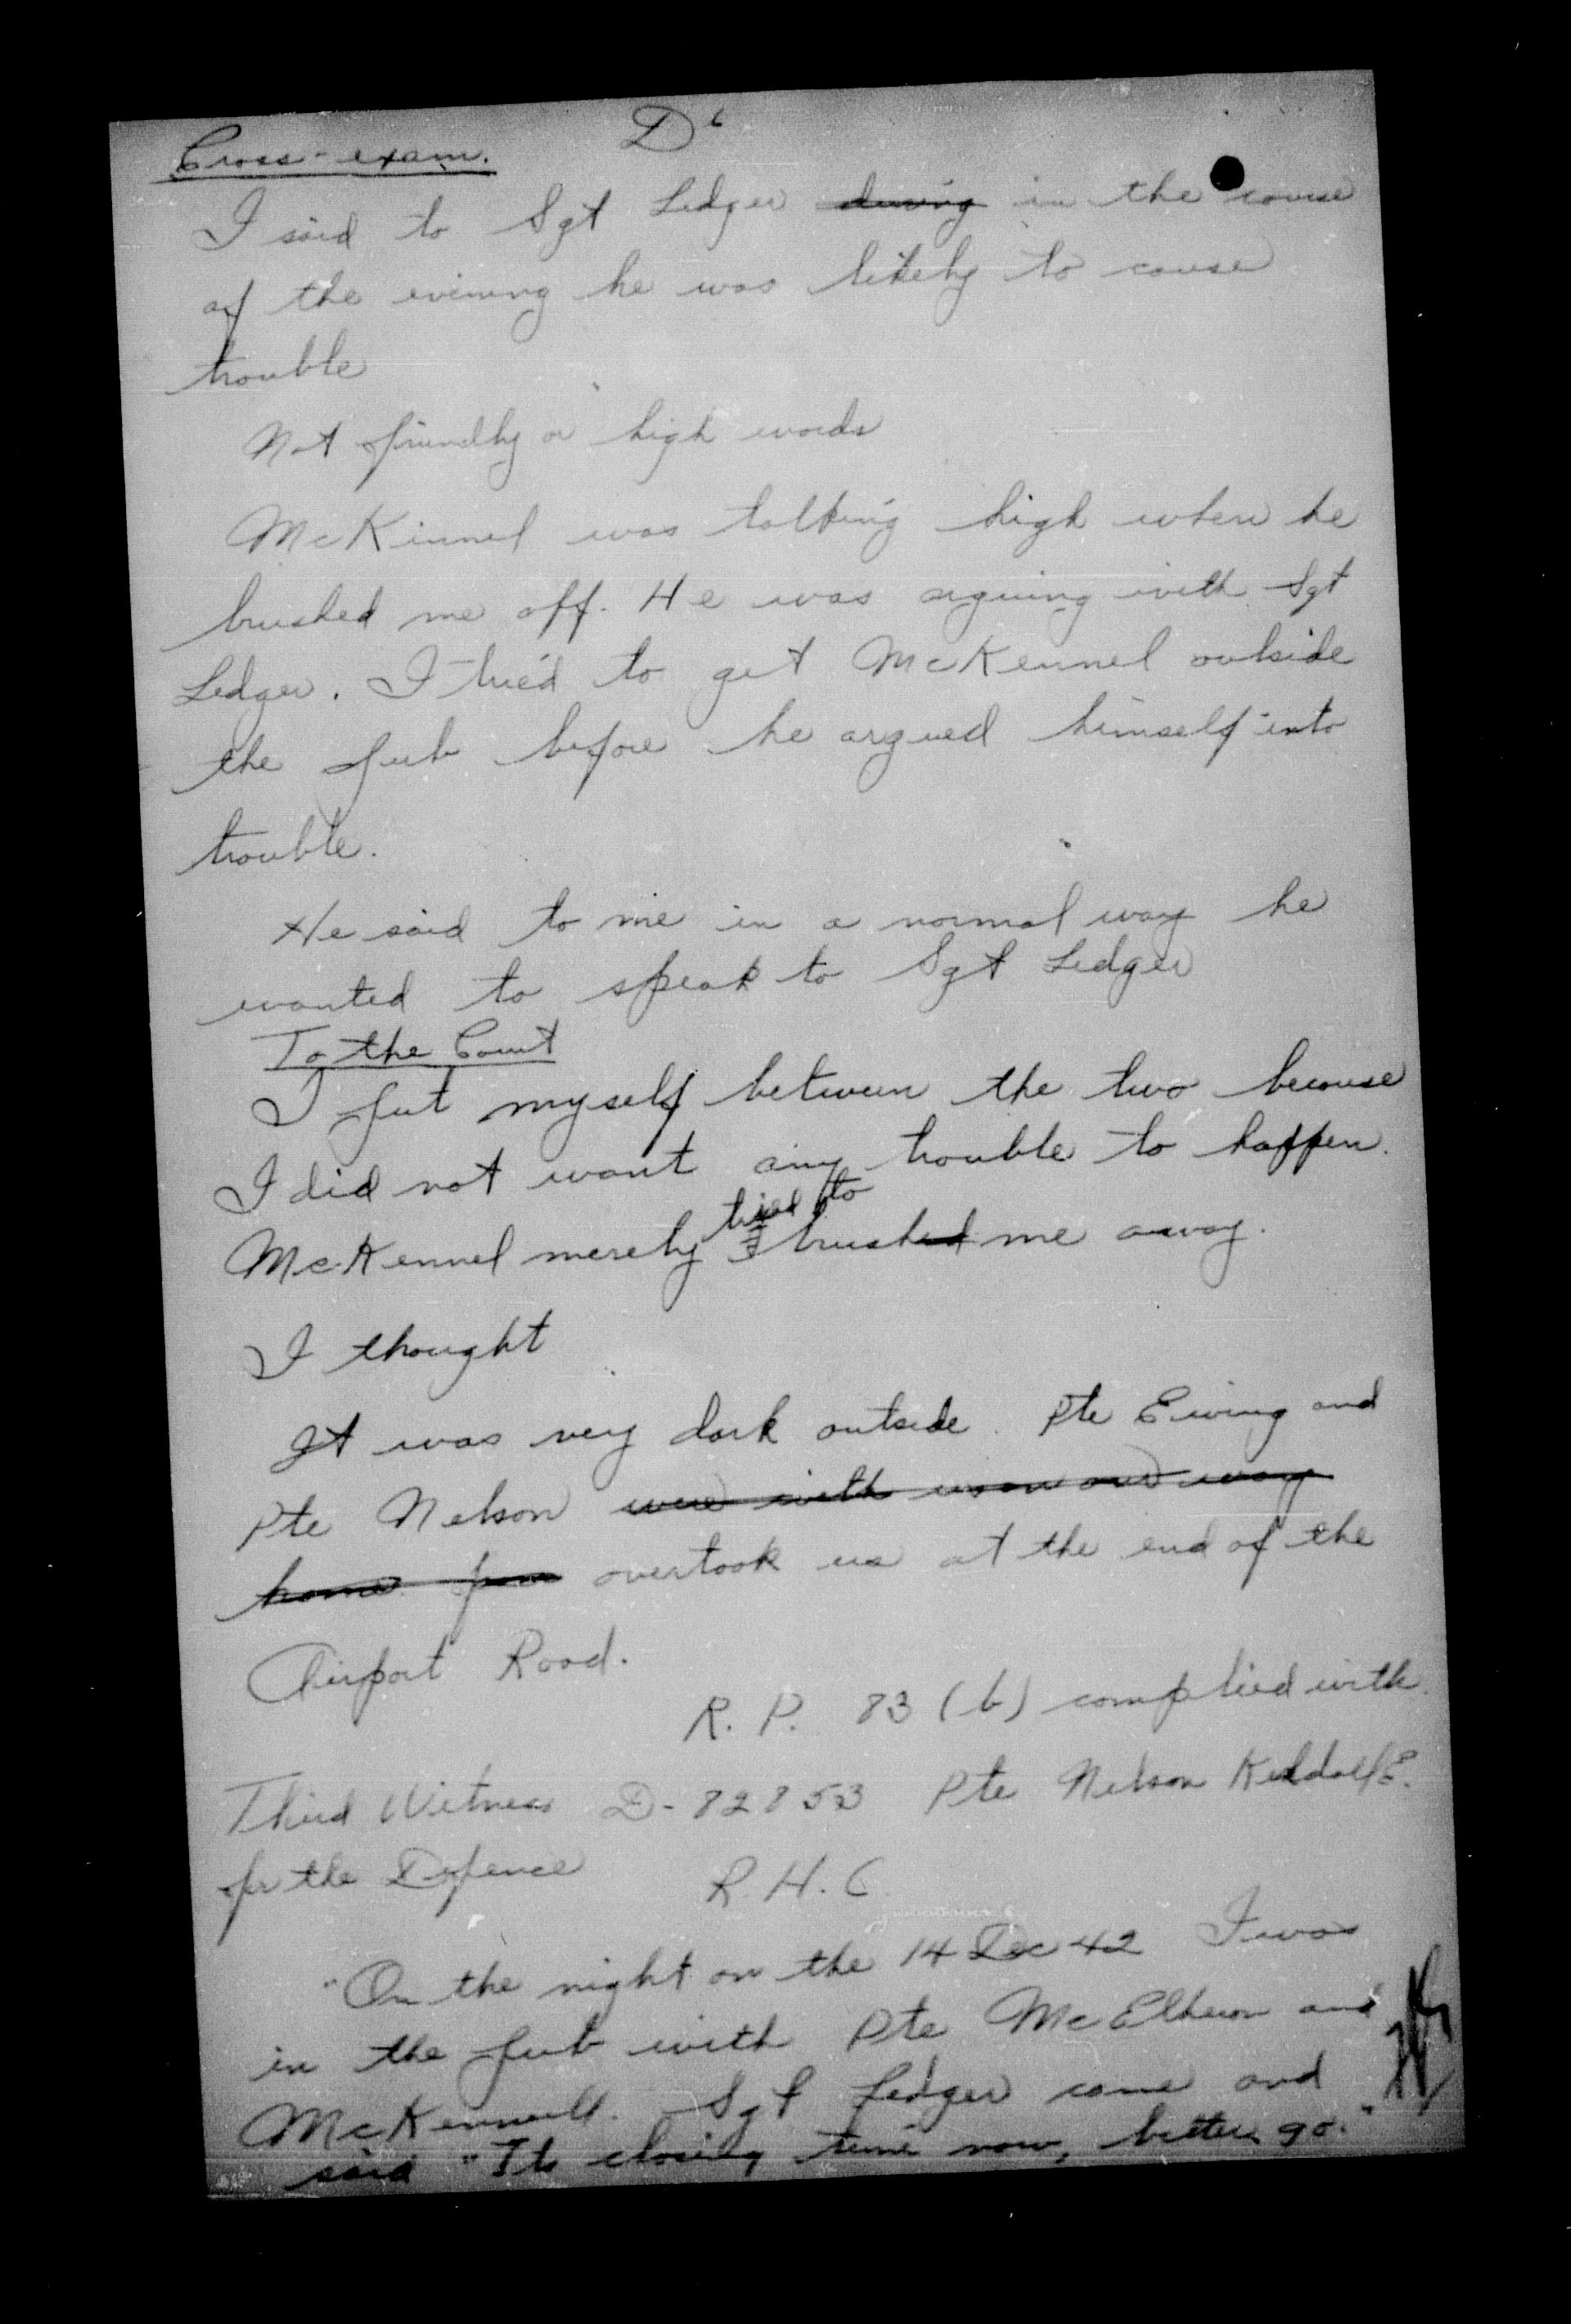 D6
Cross-exam.
I said to Sgt Ledger during in the course
of the evening he was likely to cause
trouble
Not friendly or high words
McKinnel was talking high when he
brushed me off. He was arguing with Sgt
Ledger. I tried to get McKennel outside
the pub before he argued himself into
trouble.
He said to me in a normal way he
wanted to speak to Sgt Ledger
To the Court
I put myself between the two because
I did not want any trouble to happen.
tried to
McKennel merely brushed me away.
I thought
It was very dark outside. Pte Ewing and
Pte Nelson were with us on our way
home overtook us at the end of the
Airport Road.
R. P. 83 (b) complied with.
Third Witness D-82853 Pte Nelson E.
for the Defence R.H.C.
"On the night on the 14 Dec 42 I was
in the pub with Pte McElheron and
McKennell. Sgt Ledger came and
said "Its closing time now, better go."